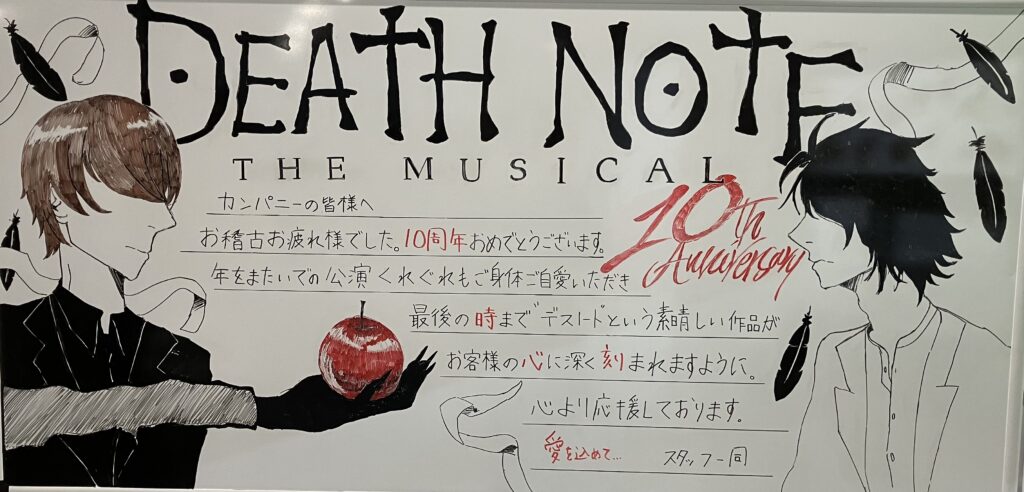 DEATH NOTE
THE MUSICAL
10th
Anniversary
カンパニーの皆様へ
お稽古お疲れ様でした。10周年おめでとうございます。
年をまたいでの公演くれぐれもご身体ご自愛いただき
最後の時まで"デスノート"という素晴しい作品が
お客様の心に深く刻まれますように。
心より応援しております。
愛を込めて… スタッフ一同